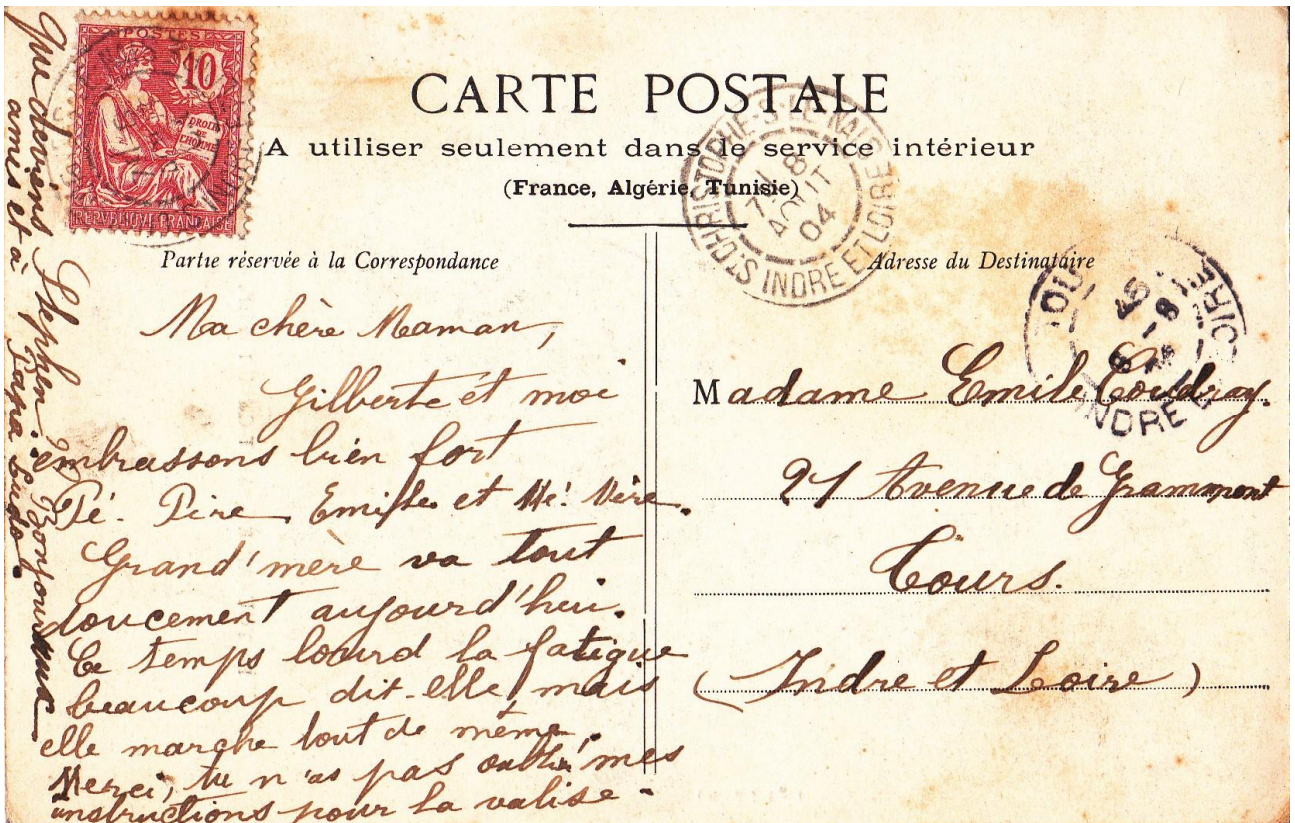 POSTES
10
DROITS
DE
L'HOMME
REPVBLIQVE FRANCAISE
CARTE POSTALE
A utiliser seulement dans le service intérieur
(France, Algérie, Tunisie)
ST CHRISTOPHE-S-LE-NAIS INDRE ET LOIRE
8
AOUT
04
Partie réservée à la Correspondance
Ma chère Maman,
Gilberte et moi
embrassons bien fort
Pé. Père, Emile et Mé. Mère.
Grand'mère va tout
doucement aujourd'hui.
Ce temps lourd la fatigue
beaucoup dit-elle mais
elle marche tout de même.
Merci, tu n'as pas oublié mes
instructions pour la valise-
Que deviens Stephen? Bonjour aux
amis et à Papa Ludo.
Adresse du Destinataire
INDRE
Madame Emile Coudray.
21 Avenue de Grammont
Tours.
(Indre et Loire)